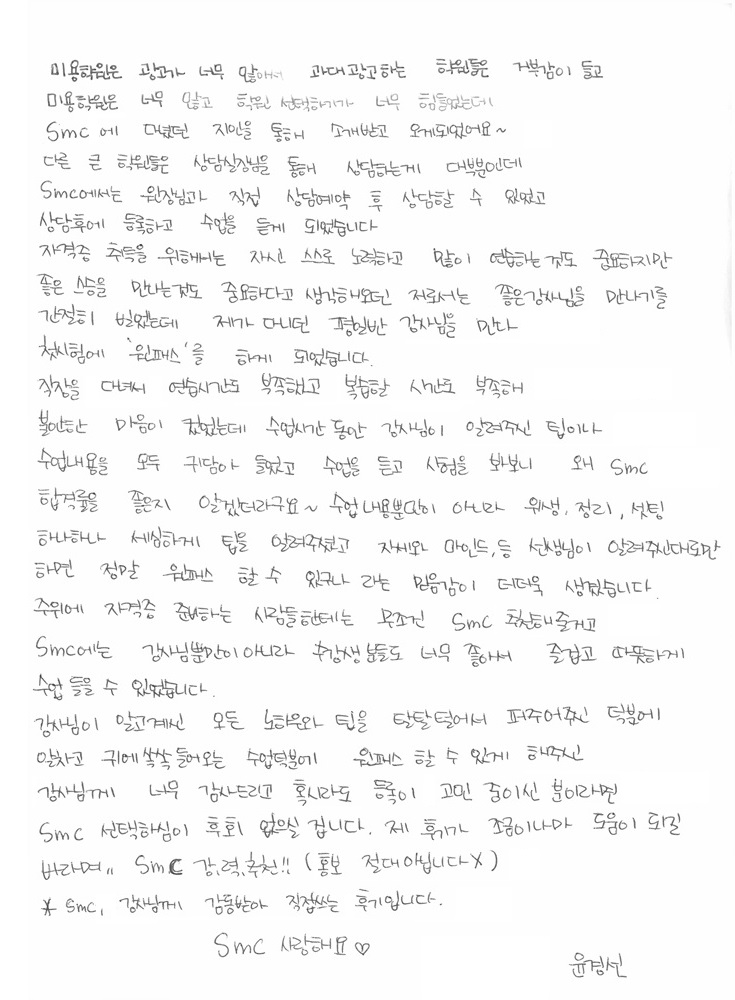 미용학원은 광고가 너무 많아서 과대광고하는 학원들은 거부감이 들고
미용학원은 너무 많고 학원 선택하기가 너무 힘들었는데
Smc에 다녔던 지인을 통해 소개받고 오게되었어요~
다른 큰 학원들은 상담실장님을 통해 상담하는게 대부분인데
Smc에서는 원장님과 직접 상담예약 후 상담할 수 있었고
상담후에 등록하고 수업을 듣게 되었습니다
자격증 취득을 위해서는 자신 스스로 노력하고 많이 연습하는것도 중요하지만
좋은 스승을 만나는것도 중요하다고 생각해오던 저로서는 좋은강사님을 만나기를
간절히 빌었는데 제가 다니던 평일반 강사님을 만나
첫시험에 '원패스'를 하게 되었습니다.
직장을 다녀서 연습시간도 부족했고 복습할 시간도 부족해
불안한 마음이 컸었는데 수업시간 동안 강사님이 알려주신 팁이나
수업내용을 모두 귀담아 들었고 수업을 듣고 시험을 봐보니 왜 Smc
합격률을 좋은지 알겠더라구요~ 수업내용뿐만이 아니라 위생, 정리, 셋팅
하나하나 세심하게 팁을 알려주셨고 자세와 마인드,등 선생님이 알려주신대로만
하면 정말 원패스 할 수 있구나 라는 믿음감이 더더욱 생겼습니다.
주위에 자격증 준비하는 사람들한테는 무조건 Smc 추천해줄거고
Smc에는 강사님뿐만이아니라 수강생분들도 너무 좋아서 즐겁고 따뜻하게
수업 들을 수 있었습니다.
강사님이 알고계신 모든 노하우와 팁을 탈탈털어서 퍼주어주신 덕분에
알차고 귀에쏙쏙들어오는 수업덕분에 원패스 할 수 있게 해주신
강사님께 너무 감사드리고 혹시라도 등록이 고민 중이신 분이라면
Smc 선택하심이 후회 없으실 겁니다. 제 후기가 조금이나마 도움이 되길
바라며,, Smc 강,력,추천!! (홍보 절대아닙니다X)
* Smc, 강사님께 감동받아 직접쓰는 후기입니다.
Smc 사랑해요♡
윤경선